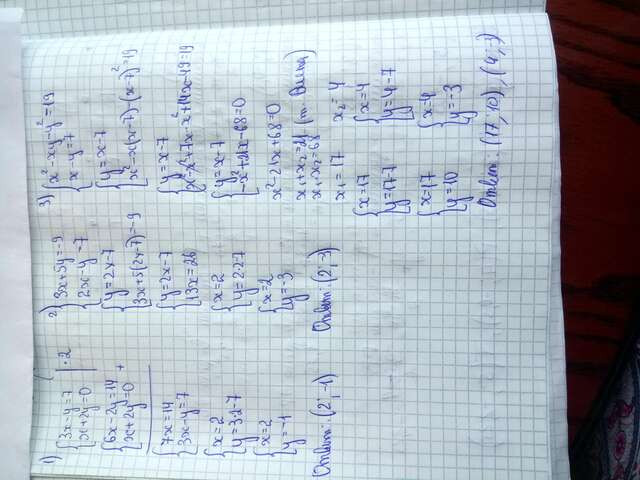 1) {3x-y=7 |·2
{x+2y=0
{6x-2y=14 +
{x+2y=0
{7x=14
{3x-y=7
{x=2
{y=3·2-7
{x=2
{y=-1
Ответ: (2; -1)
2) {3x+5y=-9
{2x-y=7
{y=2x-7
{3x+5(2x-7)=-9
{y=2x-7
{13x=26
{x=2
{y=2·2-7
{x=2
{y=-3
Ответ (2; -3)
3) {x²-xy-y²=19
{x-y=7
{y=x-7
{x²-x(x-7)-(x-7)²=19
{y=x-7
{x²-x²+7x-x²+14x-49=19
{y=x-7
{-x²+21x-68=0
x²-21x+68=0
x₁+x₂=21 (т. Виета)
x₁·x₂=68
x₁=17 x₂=4
{x=17 {x=4
{y=17-7 {y=4-7
{x=17 {x=4
{y=10 {y=-3
Ответ: (17; 10), (4; -3)